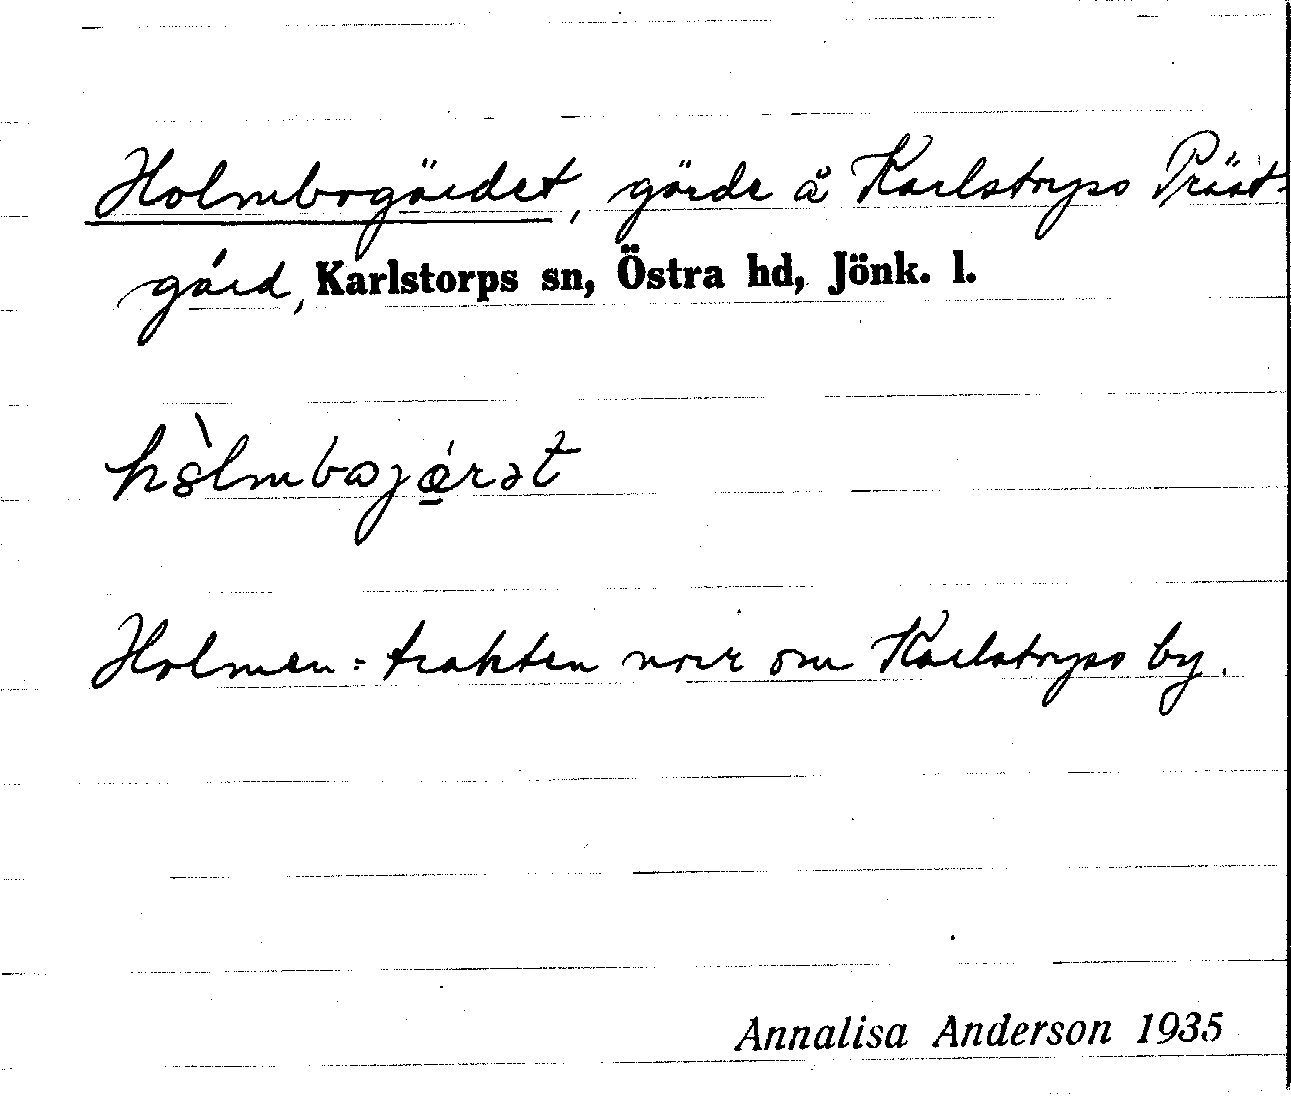 Holmbogärdet, gärde å Karlstorps Präst-
gård, Karlstorps sn, Östra hd, Jönk. l.
hòlmbojǽrət
Holmen = trakten norr om Karlstorps by.
Annalisa Anderson 1935